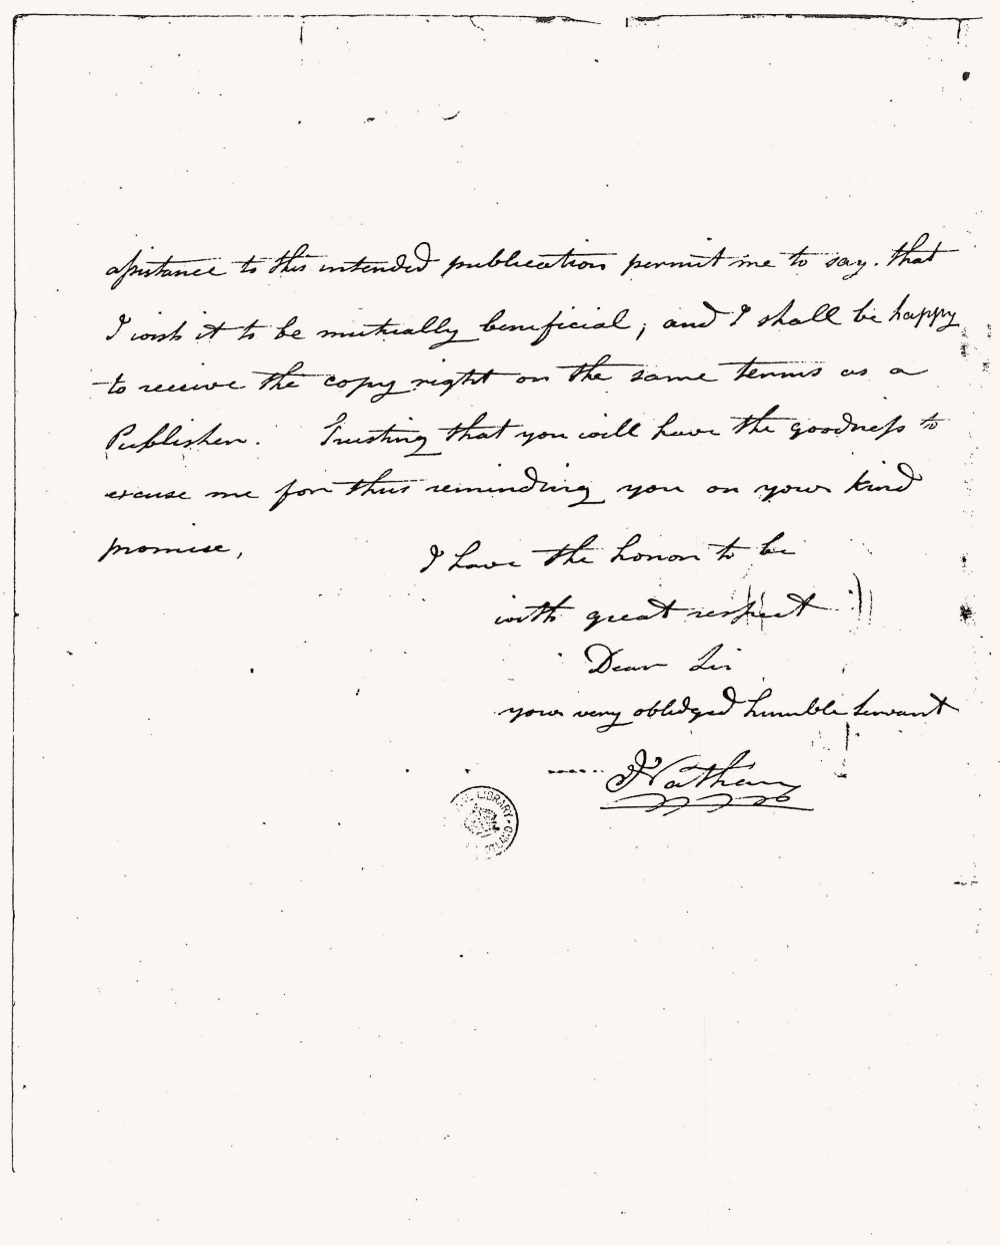 assistance to this intended publication permit me to say. that
I wish it to be mutually beneficial, and I shall be happy
to receive the copy right on the same terms as a
Publisher. Trusting that you will have the goodness to
excuse me for thus reminding you on your kind
promise,
I have the honor to be
with great respect
Dear Sir
your very obliged humble Servant
I Nathan
LIBRARY